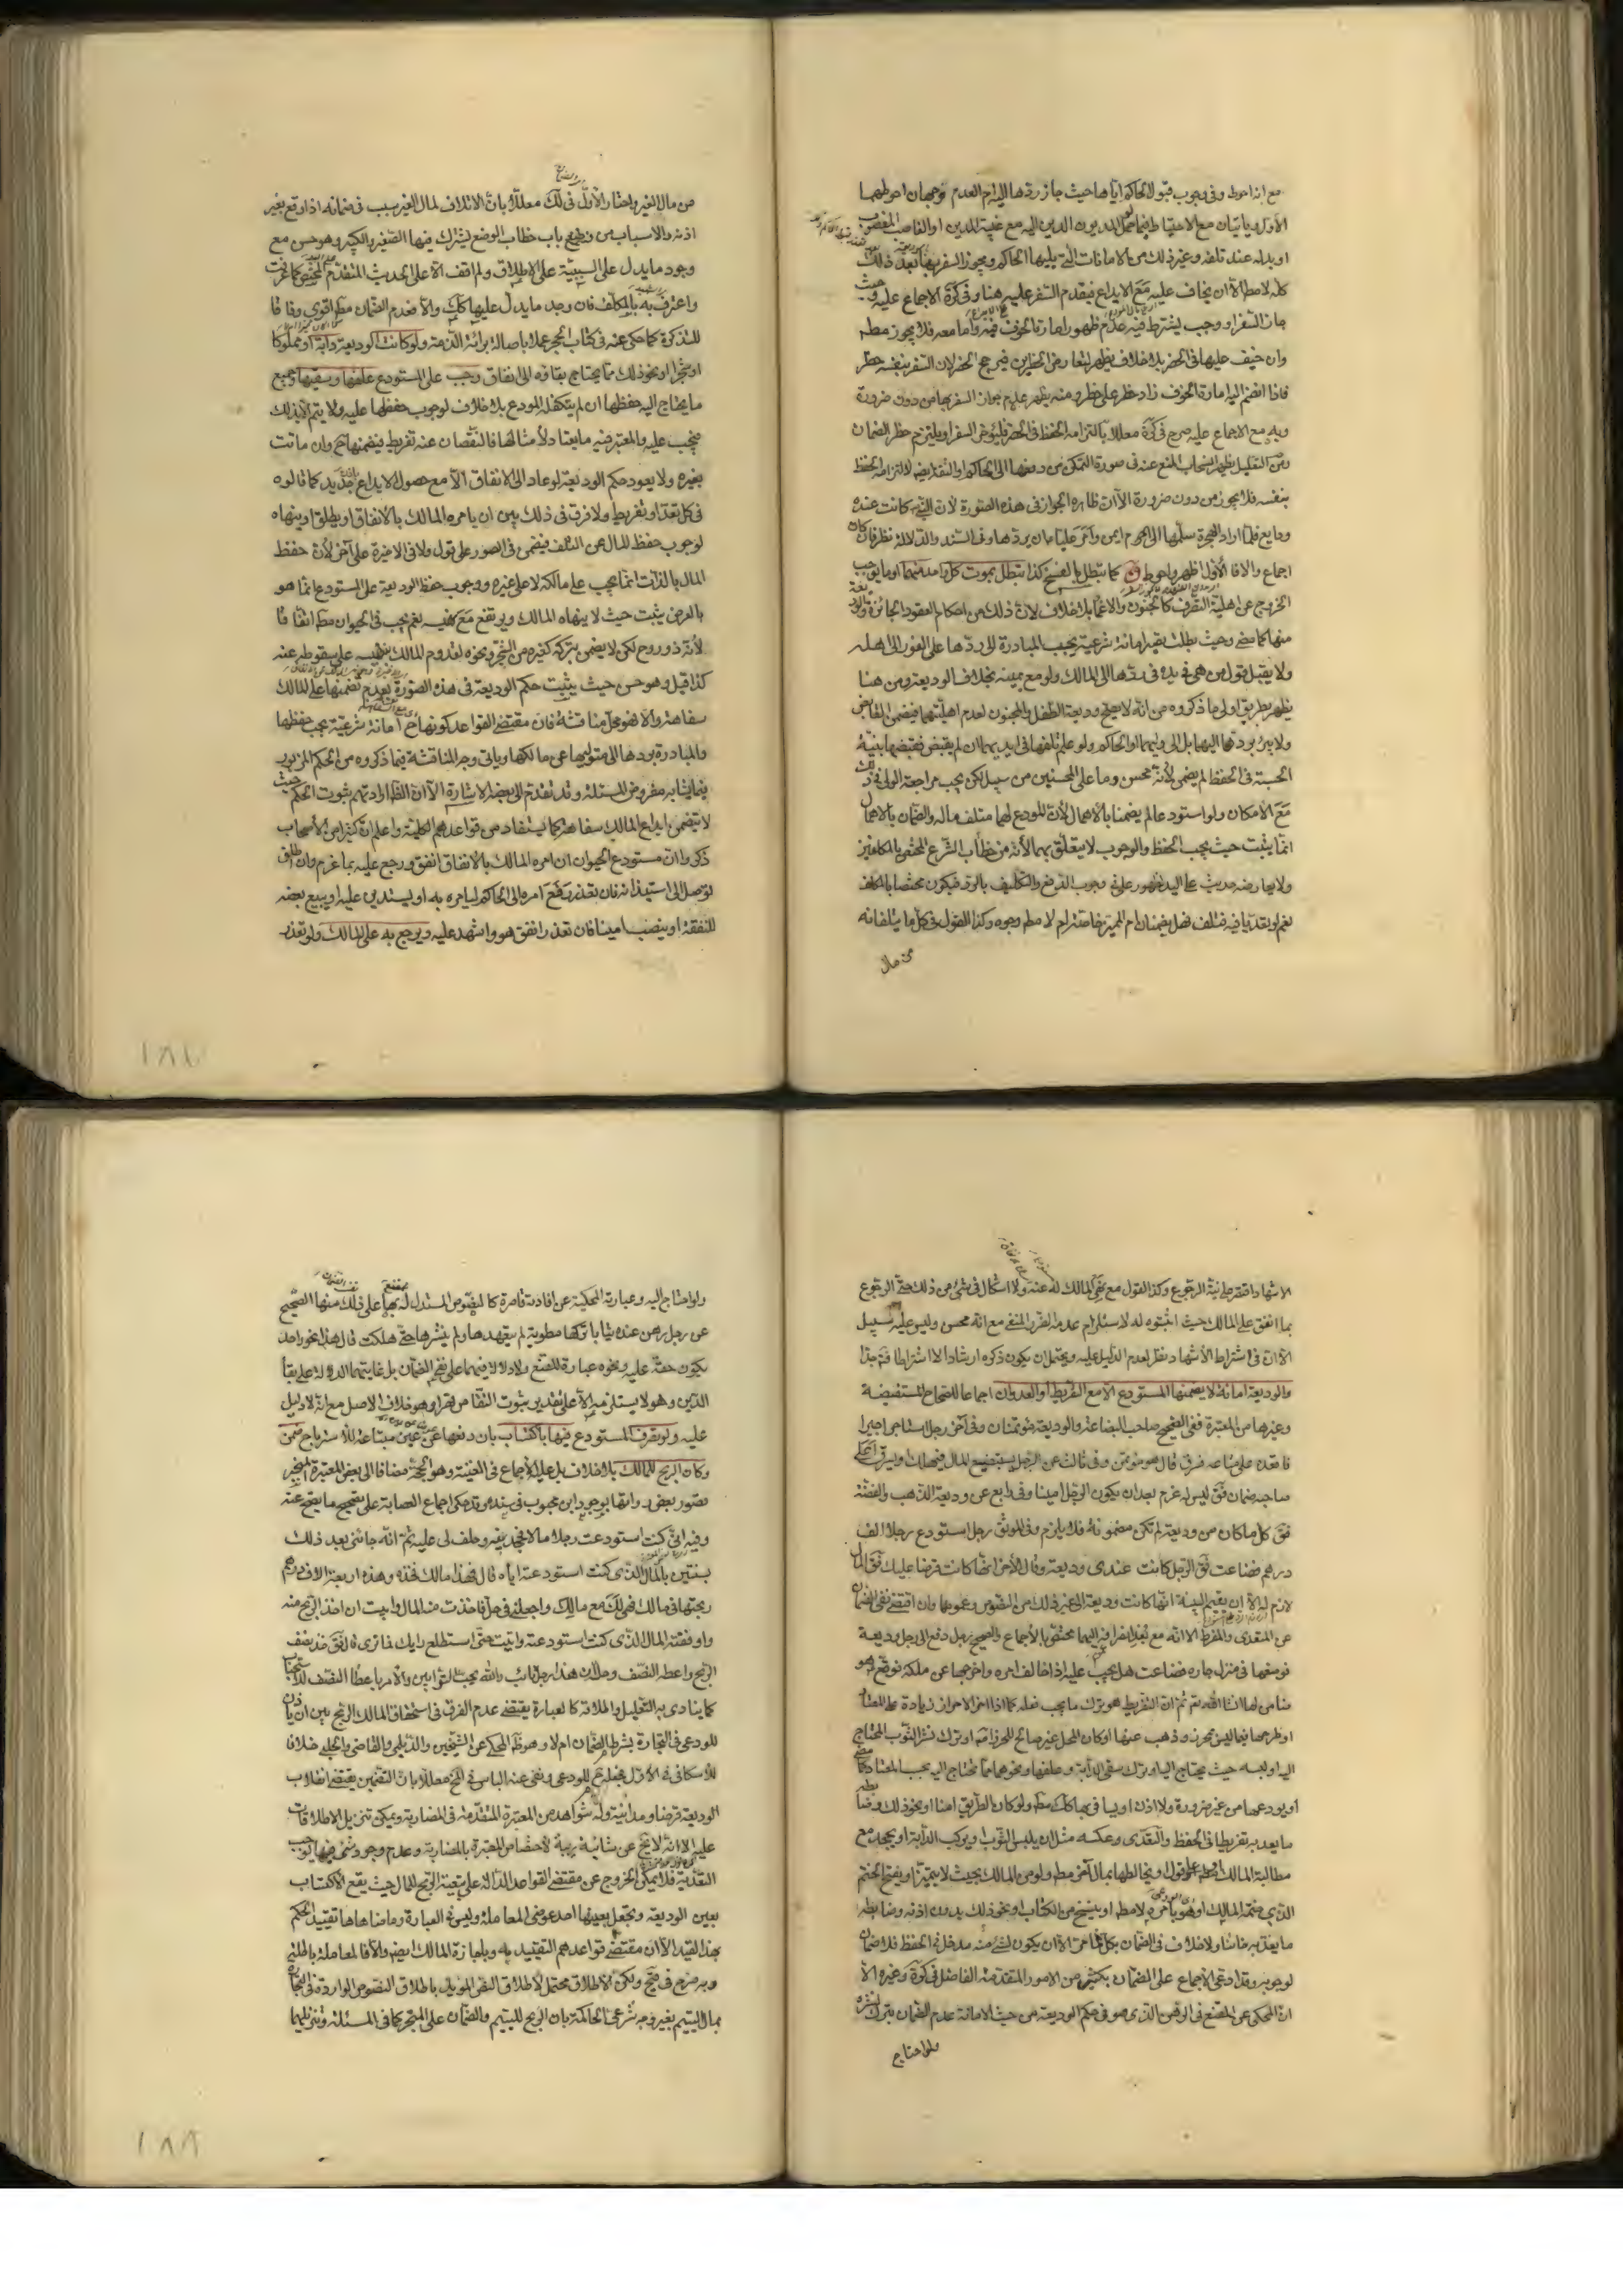 مع انه احوط وفى وجوب قبول الحاكم اياها حيث جاز ردها اليه ام العدم وجهان احوطهما
الاول وياتيان مع الاحتياط فيما لو حمل المديون الدين اليه مع غيبة المدين او الغاصب المغصوب
او بدله عند تلفه وغير ذلك من الامانات التى يليها الحاكم ويجوز السفر بها بعد ذلك
كله لا مط الا ان يخاف عليه مع الايداع فيقدم السفر عليه هنا وفى كرة الاجماع عليه وحيث
جاز السفر او وجب يشترط فيه عدم ظهور امارة الخوف فيه واما معه فلا يجوز مطم
وان خيف عليها فى الحضر بلا خلاف يظهر لتعارض الخطرين فيرجح الحضر لان السفر بنفسه خطر
فاذا انضم اليه امارة الخوف زاد خطر على خطر ومنه يظهر عدم جواز السفر بها من دون ضرورة
وبه مع الاجماع عليه صرح فى كرة معللا بالتزامه الحفظ فى الحضر فليؤخر السفر او يلتزم خطر الضمان
ومن التعليل يظهر انسحاب المنع عنه فى صورة التمكن من دفعها الى الحاكم او الثقة ايضا لالتزامه الحفظ
بنفسه فلا يجوز من دون ضرورة الا ان ظاهره الجواز فى هذه الصورة لان النبى كانت عنده
ودايع فلما اراد الهجرة سلمها الى ام ايمن وامر عليا بان يردها وفى السند والدلالة نظر فان كان
اجماع والا فالاول اظهر واحوط و كما تبطل بالفسخ كذا تبطل بموت كل واحد منهما او ما يوجب
الخروج عن اهلية التصرف كالجنون والاغماء بلا خلاف لان ذلك من احكام العقود الجائزة والوديعة
منها كما مضى وحيث بطلت يصير امانة شرعية يجب المبادرة الى ردها على الفور الى اهله
ولا يقبل قول من هى فى يده فى ردها الى المالك ولو مع يمينه بخلاف الوديعة ومن هنا
يظهر بطريق اولى ما ذكروه من انه لا يصح وديعة الطفل والمجنون لعدم اهليتهما فيضمن القابض
ولا يبرء بردها اليهما بل الى وليهما او الحاكم ولو علم تلفها فى ايديهما ان لم يقبض فقبضها بنية
الحسبة فى الحفظ لم يضمن لانه محسن وما على المحسنين من سبيل لكن يجب مراجعة الولى فى ذلك
مع الامكان ولو استودعا لم يضمنا بالاهمال لان المودع لهما متلف ماله والضمان بالاهمال
انما يثبت حيث يجب الحفظ والوجوب لا يتعلق بهما لانه من خطاب الشرع المختص بالمكلفين
ولا يعارضه حديث على اليد لظهور على فى وجوب الدفع والتكليف بالرد فيكون مختصا بالمكلف
نعم لو تعديا فيه فتلف فهل يضمنان ام المميز خاصة ام لا مطم وجوه وكذا القول فى كل ما يتلفانه
من مال
من مال الغير واختار الاول فى لك معللا بان الاتلاف لمال الغير سبب فى ضمانه اذا وقع بغير
اذنه والاسباب من باب خطاب الوضع يشترك فيها الصغير والكبير وهو حسن مع
وجود ما يدل على السببية على الاطلاق ولم اقف الا على الحديث المتقدم المختص كما عرفت
واعترف به بالمكلف فان وجد ما يدل عليها كك والا فعدم الضمان مطم اقوى وفاقا
للتذكرة كما حكى عنه فى كتاب الحجر عملا باصالة برائة الذمة ولو كانت الوديعة دابة او مملوكا
او شجرا او نحو ذلك مما يحتاج بقاؤه الى انفاق وجب على المستودع علفها وسقيها وجميع
ما يحتاج اليه حفظها ان لم يتكفله المودع بلا خلاف لوجوب حفظها عليه ولا يتم الا بذلك
فيجب عليه والمعتبر فيه ما يعتاد لامثالها فالنقصان عنه تفريط فيضمنها ح وان ماتت
بغيره ولا يعود حكم الوديعة لو عاد الى الانفاق الا مع حصول الايداع الجديد كما قالوه
فى كل تعد او تفريط ولا فرق فى ذلك بين ان يامره المالك بالانفاق او يطلق او ينهاه
لوجوب حفظ المال عن التلف فيضمن فى الصور على قول ولا فى الاخيرة على آخر لان حفظ
المال بالذات انما يجب على مالكه لا على غيره ووجوب حفظ الوديعة على المستودع انما هو
بالعرض يثبت حيث لا ينهاه المالك ويرتفع مع نهيه نعم يجب فى الحيوان مطم اتفاقا
لانه ذو روح لكن لا يضمن بتركه كغيره من الشجر ونحوه لقدوم المالك بنهيه على سقوطه عنه
كذا قيل وهو حسن حيث يثبت حكم الوديعة فى هذه الصورة بعدم تضمنها على المالك
سفاهة والا فهو محل مناقشة فان مقتضى القواعد كونها ح امانة شرعية يجب حفظها
والمبادرة بردها الى متوليها عن مالكها وياتى وجه المناقشة فيما ذكروه من الحكم المزبور
فيما يشابه مفروض المسئلة وقد تقدم الى بعضه الاشارة الا ان الظ ارادتهم ثبوت الحكم حيث
لا يتضمن ايداع المالك سفاهة كما يستفاد من قواعدهم الكلية واعلم ان كثيرا من الاصحاب
ذكروا ان مستودع الحيوان ان امره المالك بالانفاق انفق ورجع عليه بما غرم وان اطلق
توصل الى استيذانه فان تعذر رفع امره الى الحاكم ليامره به او يستدين عليه او يبيع بعضه
للنفقة او ينصب امينا فان تعذر انفق هو واشهد عليه ويرجع به على المالك ولو تعذر
الاشهاد اقتصر على نية الرجوع وكذا القول مع نهى المالك له عنه ولا اشكال فى شئ من ذلك حتى الرجوع
بما انفق على المالك حيث اثبتوه له لاستلزام عدمه الضرر المنفى مع انه محسن وليس عليه سبيل
الا ان فى اشتراط الاشهاد نظر لعدم الدليل عليه ويحتمل ان يكون ذكره ارشادا لا اشتراطا فتم جدا
والوديعة امانة لا يضمنها المستودع الا مع التفريط او العدوان اجماعا للصحاح المستفيضة
وغيرها من المعتبرة ففى الصحيح صاحب البضاعة والوديعة مؤتمنان وفى آخر رجل استاجر اجيرا
فاقعده على متاعه فسرق قال هو مؤتمن وفى ثالث عن الرجل يستبضع المال فيهلك او يسرق اعلى
صاحبه ضمان فق ليس له غرم بعد ان يكون الرجل امينا وفى رابع عن وديعة الذهب والفضة
فق كل ما كان من وديعة لم تكن مضمونة فلا يلزم وفى الموثق رجل استودع رجلا الف
درهم فضاعت فق الرجل كانت عندى وديعة وقال الاخر انما كانت قرضا عليك فق المال
لازم له الا ان يقيم البينة انها كانت وديعة الى غير ذلك من النصوص وعمومها وان اقتضى نفى الضمان
عن المتعدى والمفرط الا انه مع بعد انصرافه اليهما مختص بالاجماع والصحيح رجل دفع الى رجل وديعة
فوضعها فى منزل جاره فضاعت هل يجب عليه اذا خالف امره واخرجها عن ملكه فوقع هو
ضامن لها انشا الله تم ثم ان التفريط هو ترك ما يجب فعله كما اذا اخر الاحراز زيادة على المعتاد
او طرحها فيما ليس بحرز وذهب عنها او كان المحل غير صالح للحرز لها او ترك نشر الثوب المحتاج
اليه او لبسه حيث يحتاج اليه او ترك سقى الدابة وعلفها ونحوهما مما تحتاج اليه بحسب المعتاد كما مضى
او يودعها من غير ضرورة ولا اذن او يسافر بها كك مطم ولو كان الطريق امنا او نحو ذلك وضابطه
ما يعد به تفريطا فى الحفظ والتعدى وعكسه مثل ان يلبس الثوب او يركب الدابة او يجحد مع
مطالبة المالك او مط على قول او يخالطها بمال آخر مطم ولو من المالك بحيث لا يتميز او يفتح الختم
الذى ختمه المالك او هو بامره لا مط او ينسخ من الكتاب او نحو ذلك بدون اذنه وضابطه
ما يعد به خائنا ولا خلاف فى الضمان بكل الامرين الا ان يكون لشئ منه مدخل فى الحفظ فلا ضمان
لوجوبه وقد ادعى الاجماع على الضمان بكثير من الامور المتقدمة الفاضل فى كرة وغيره الا
ان المحكى عن المقنع فى الرهن الذى هو فى حكم الوديعة من حيث الامانة عدم الضمان بترك نشره
ولو احتاج
ولو احتاج اليه وعبارته المحكية عن افادته قاصرة كالنصوص المستدل له بها على ذلك منها الصحيح
عن رجل رهن عنده ثيابا تركها مطوية لم يتعهدها ولم ينشرها حتى هلكت قال هذا نحو واحد
يكون حقه عليه ونحوه عبارة المقنع ولا دلالة فيهما على نفى الضمان بل غايتهما الدلالة على بقاء
الدين وهو لا يستلزمه الا على تقدير ثبوت التقاص قهرا وهو خلاف الاصل مع انه لا دليل
عليه ولو تصرف المستودع فيها باكتساب بان دفعها عن عين مبتاعة للاسترباح ضمن
وكان الربح للمالك بلا خلاف بل عليه الاجماع فى الغنية وهو الحجة مضافا الى بعض المعتبرة المنجبر
قصور بعض رواتها بوجود ابن محبوب فى سنده وقد حكى اجماع العصابة على تصحيح ما يصح عنه
وفيه انى كنت استودعت رجلا مالا فجحدنيه وحلف لى عليه ثم انه جائنى بعد ذلك
بسنتين بالمال الذى كنت استودعته اياه قال فهذا مالك فخذه وهذه اربعة الاف درهم
ربحتها فى مالك فهى لك مع مالك واجعلنى فى حل فاخذت منه المال وابيت ان اخذ الربح منه
واوقفته المال الذى كنت استودعته واتيت حتى استطلع رايك فما ترى قال فق خذ نصف
الربح واعطه النصف وحله ان هذا رجل تائب والله يحب التوابين والامر باعطاء النصف للاستحباب
كما ينادى به التعليل واطلاقه كالعبارة يقتضى عدم الفرق فى استحقاق المالك الربح بين ان ياذن
للودعى فى التجارة بشرط الضمان ام لا وهو ظ المحكى عن الشيخين والديلمى والقاضى والحلبى خلافا
للاسكافى فى الاول فجعله للودعى ونفى عنه الباس فى المخ معللا بان التضمين يقتضى انقلاب
الوديعة قرضا ومداينة وله شواهد من المعتبرة المتقدمة فى المضاربة ويمكن تنزيل الاطلاقات
عليه الا انه لا يخ عن شائبة ريبة لاختصاص المعتبرة بالمضاربة وعدم وجود شئ فيها يوجب
التعدية فلا يمكن الخروج عن مقتضى القواعد الدالة على تبعية الربح للمال حيث يقع الاكتساب
بعين الوديعة وتجعل بعينها احد عوضى المعاملة وليس فى العبارة وما ضاهاها تقييد الحكم
بهذا القيد الا ان مقتضى قواعدهم التقييد به وباجازة المالك ايضا والا فالمعاملة باطلة
وبه صرح فى تيح ولكن الاطلاق محتمل لاطلاق النص المؤيد باطلاق النصوص الواردة فى التجارة
بمال اليتيم بغير وجه شرعى الحاكمة بان الربح لليتيم والضمان على المتجر كما فى المسئلة وتنزيلهما
١٨٧
١٨٨